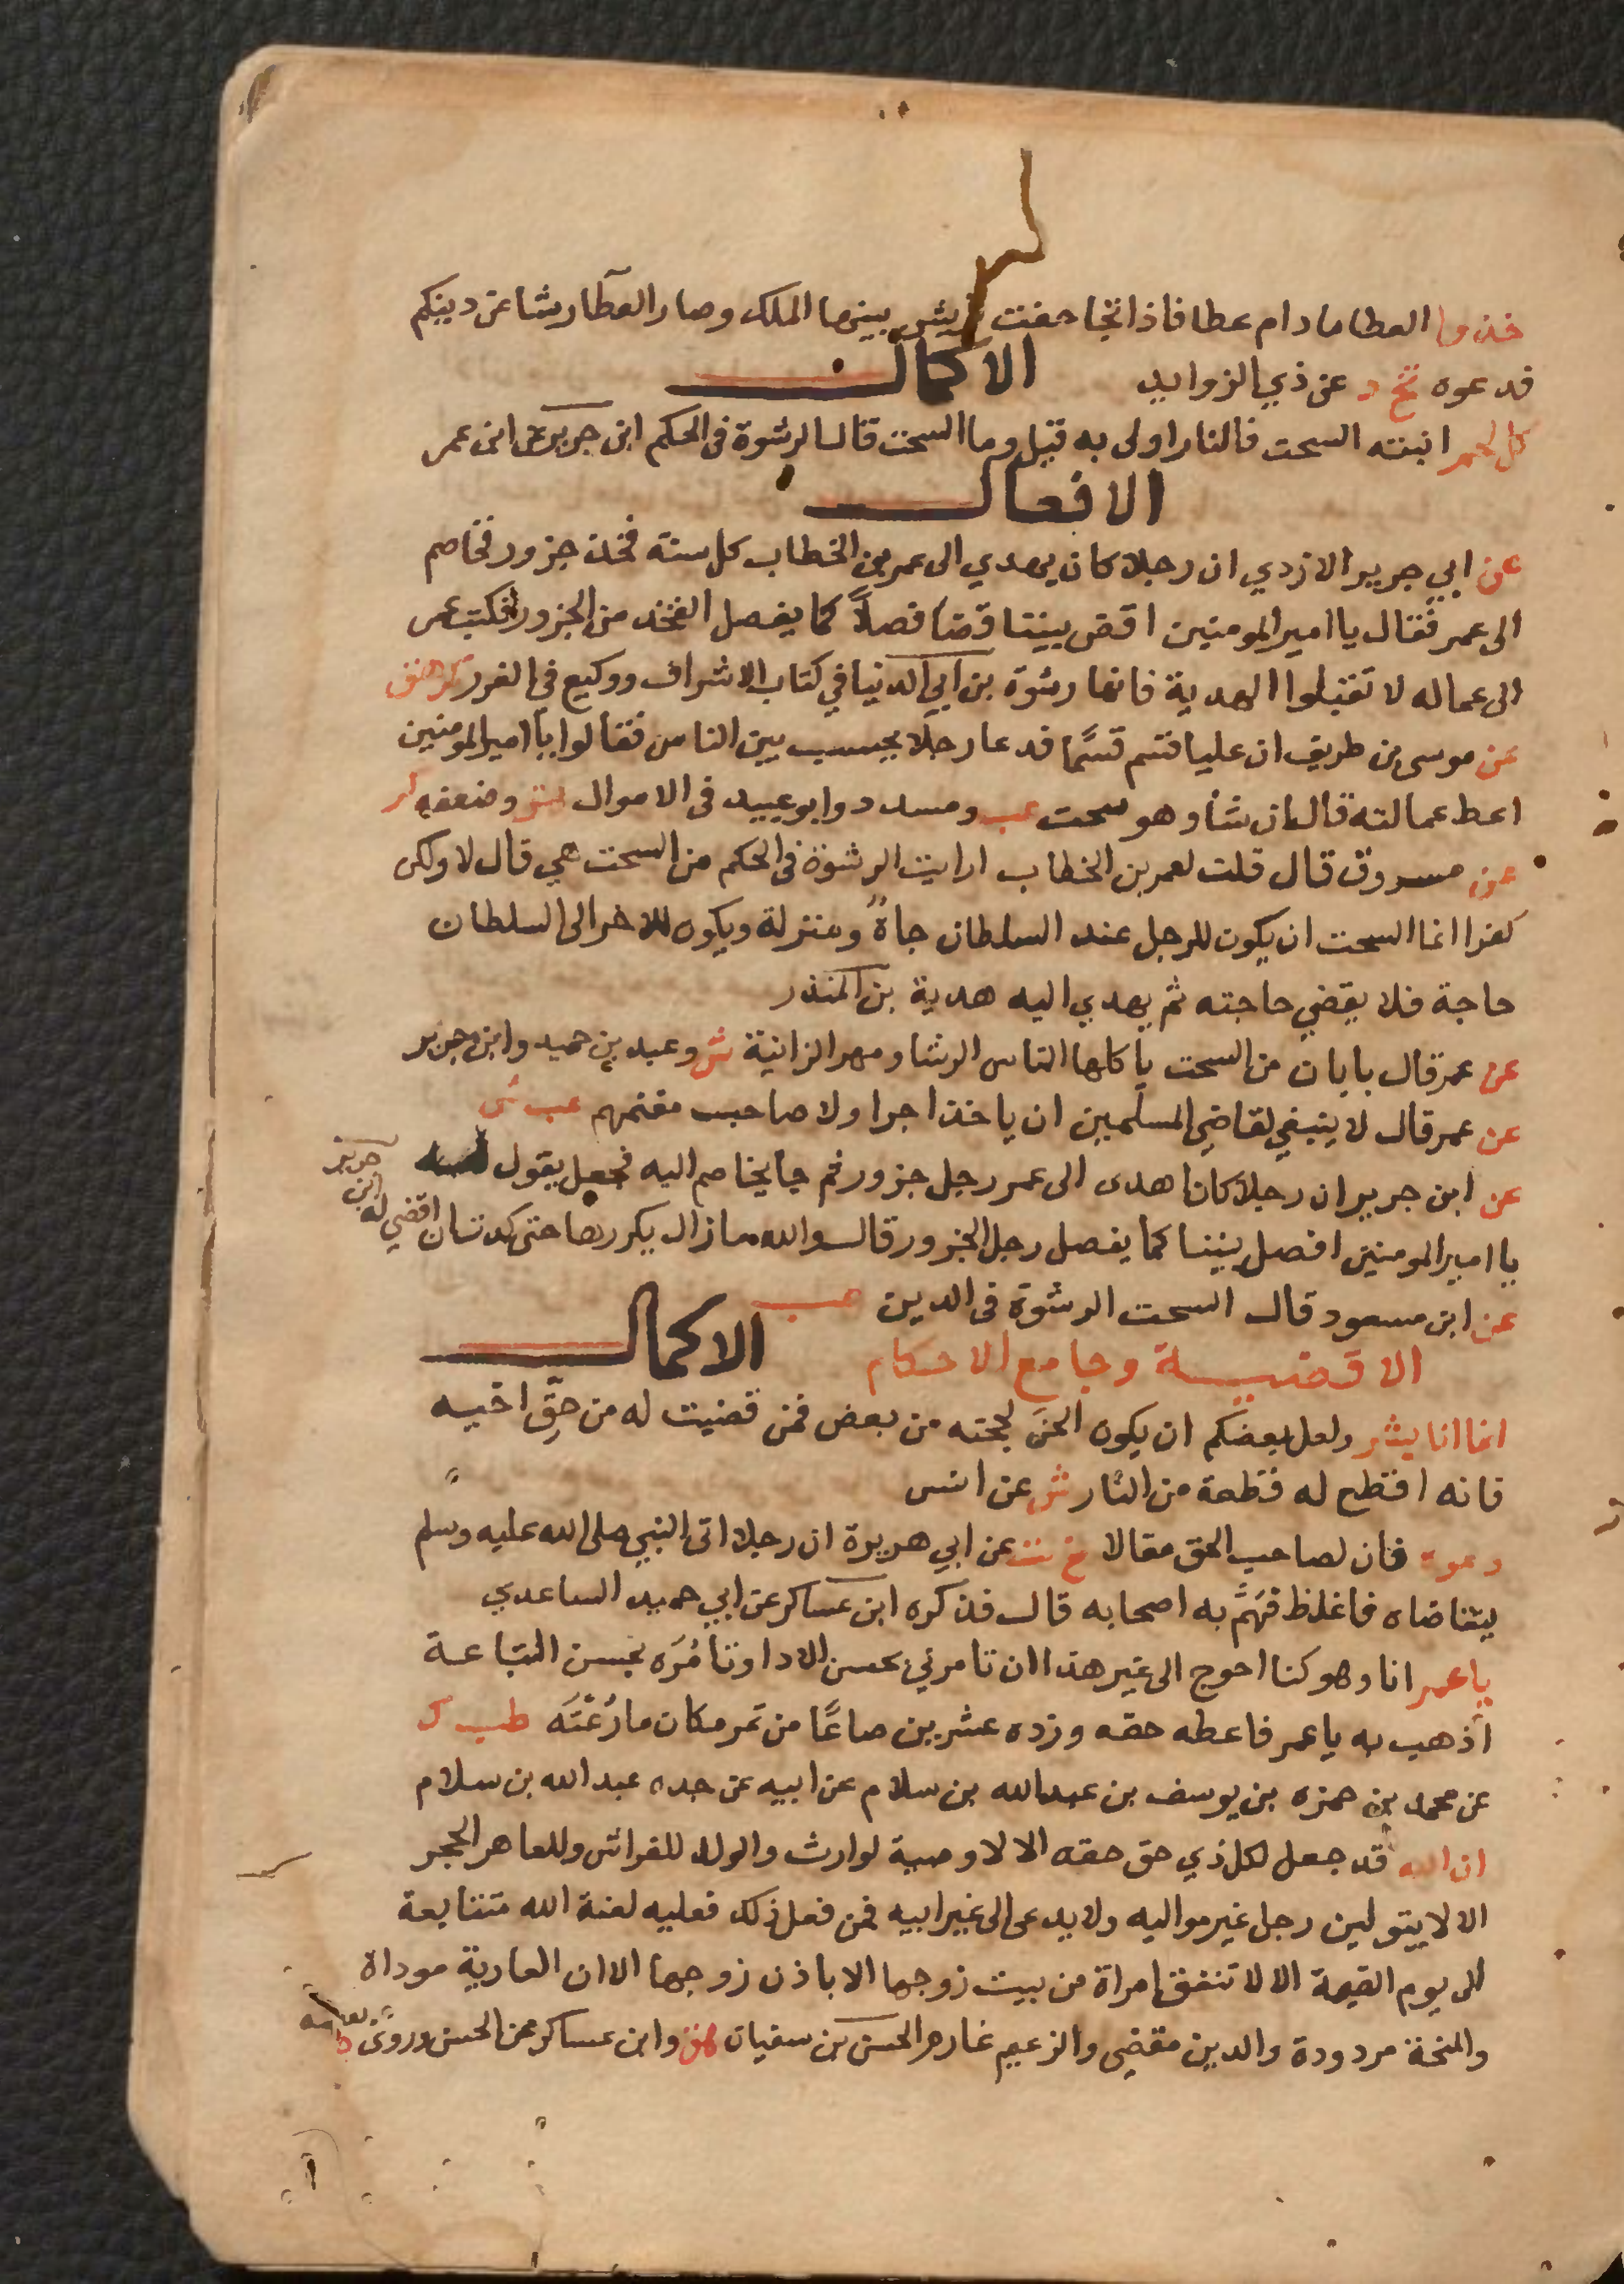 خذوا العطا مادام عطا فاذا تجاحفت قريش بينها الملك وصار العطا رشا عن دينكم
فدعوه تخ د عن ذي الزوايد الاكمال
كل لحم انبته السحت فالنار اولى به قيل وما السحت قال الرشوة في الحكم ابن جرير عن ابن عمر
الافعال
عن ابي جرير الازدي ان رجلا كان يهدي الى عمر بن الخطاب كل سنة فخذ جزور فخاصم
الى عمر فقال يا امير المومنين اقض بيننا قضا فصلاً كما يفصل الفخذ من الجزور فكتب عمر
الى عماله لا تقبلوا الهدية فانها رشوة بن ابي الدنيا في كتاب الاشراف ووكيع في الغرر كر هق
عن موسى بن طريف ان عليا قسم قسمًا فدعا رجلا يحسب بين الناس فقالوا يا امير المومنين
اعط عمالته قال ان شا وهو سحت عب ومسدد وابو عبيد في الاموال هق وضعفه كر
عن مسروق قال قلت لعمر بن الخطاب ارايت الرشوة في الحكم من السحت هي قال لا ولكن
كفرا انما السحت ان يكون للرجل عند السلطان جاهً ومنزلة ويكون للاخر الى السلطان
حاجة فلا يقضي حاجته ثم يهدي اليه هدية بن المنذر
عن عمر قال بابان من السحت ياكلها الناس الرشا ومهر الزانية ش وعبد بن حميد وابن جرير
عن عمر قال لا ينبغي لقاضي المسلمين ان ياخذ اجرا ولا صاحب مغنمهم عب ش
عن ابن جرير ان رجلا كان اهدى الى عمر رجل جزور ثم جا يخاصم اليه فجعل يقول
يا امير المومنين افصل بيننا كما يفصل رجل الجزور قال والله مازال يكررها حتى كدت ان اقضي له ابن جرير
عن ابن مسعود قال السحت الرشوة في الدين عب
الاقضية وجامع الاحكام الاكمال
انما انا بشر ولعل بعضكم ان يكون الحن لحجته من بعض فمن قضيت له من حق اخيه
فانه اقطع له قطعة من النار ش عن انس
دعوه فان لصاحب الحق مقالا خ ت عن ابي هريرة ان رجلا اتى النبي صلى الله عليه وسلم
يتقاضاه فاغلظ فهَمَّ به اصحابه قال فذكره ابن عساكر عن ابي حميد الساعدي
يا عمر انا وهو كنا احوج الى غير هذا ان تامرني بحسن الادا وتامُرَه بحسن التباعة
اذهب به يا عمر فاعطه حقه وزده عشرين صاعًا من تمر مكان ما رُعْتَه طب ك
عن محمد بن حمزه بن يوسف بن عبد الله بن سلام عن ابيه عن جده عبد الله بن سلام
ان الله قد جعل لكل ذي حق حقه الا لا وصية لوارث والولد للفراش وللعاهر الحجر
الا لا يتولين رجل غير مواليه ولا يدعى الى غير ابيه فمن فعل ذلك فعليه لعنة الله متتابعة
الى يوم القيمة الا لا تنفق امراة من بيت زوجها الا باذن زوجها الا ان العارية موداة
والمنحة مردودة والدين مقضي والزعيم غارم الحسن بن سفيان هق وابن عساكر عن الحسن وروى